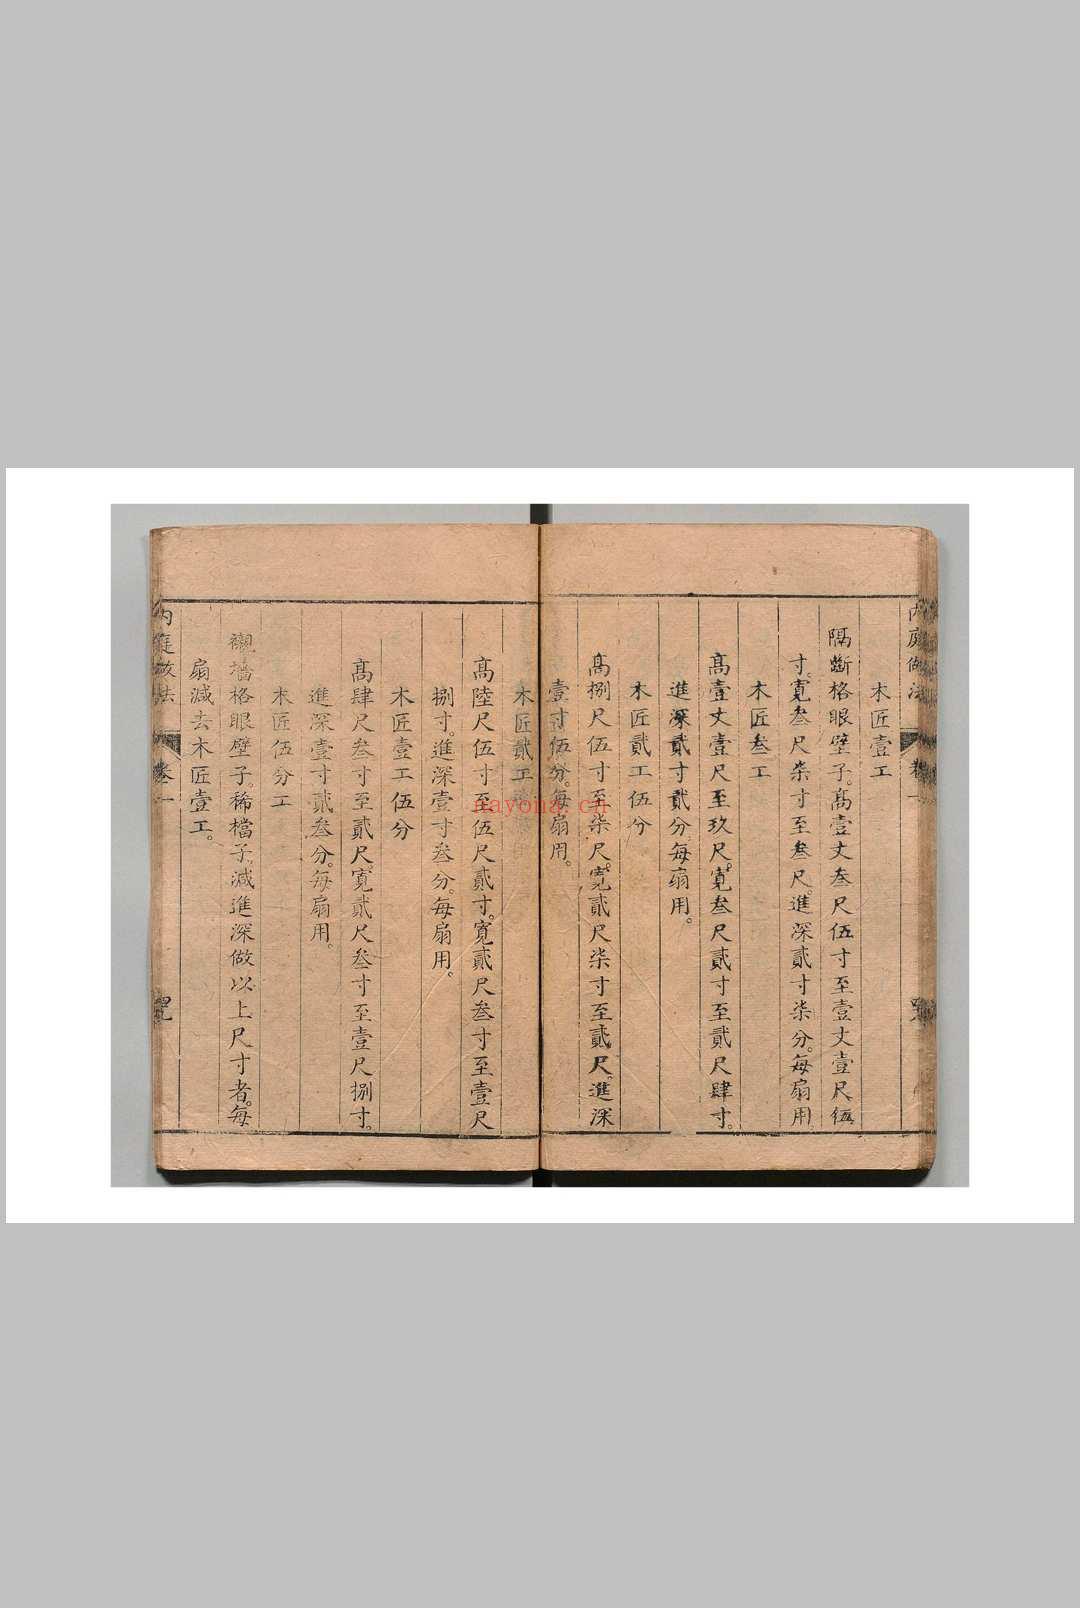 木匠壹工
隔斷格眼壁子。高壹丈叁尺伍寸至壹丈壹尺伍
寸。寬叁尺柒寸至叁尺。進深貳寸柒分。每扇用
木匠叁工
高壹丈壹尺至玖尺。寬叁尺貳寸至貳尺肆寸。
進深貳寸貳分。每扇用。
木匠貳工伍分
高捌尺伍寸至柒尺。寬貳尺柒寸至貳尺。進深
壹寸伍分。每扇用。
木匠貳工
高陸尺伍寸至伍尺貳寸。寬貳尺叁寸至壹尺
捌寸。進深壹寸叁分。每扇用。
木匠壹工伍分
高肆尺叁寸至貳尺。寬貳尺叁寸至壹尺捌寸。
進深壹寸貳叁分。每扇用。
木匠伍分工
襯墻格眼壁子。稀檔子。減進深做以上尺寸者。每
扇減去木匠壹工。
内庭做法 卷一
nayona.cn